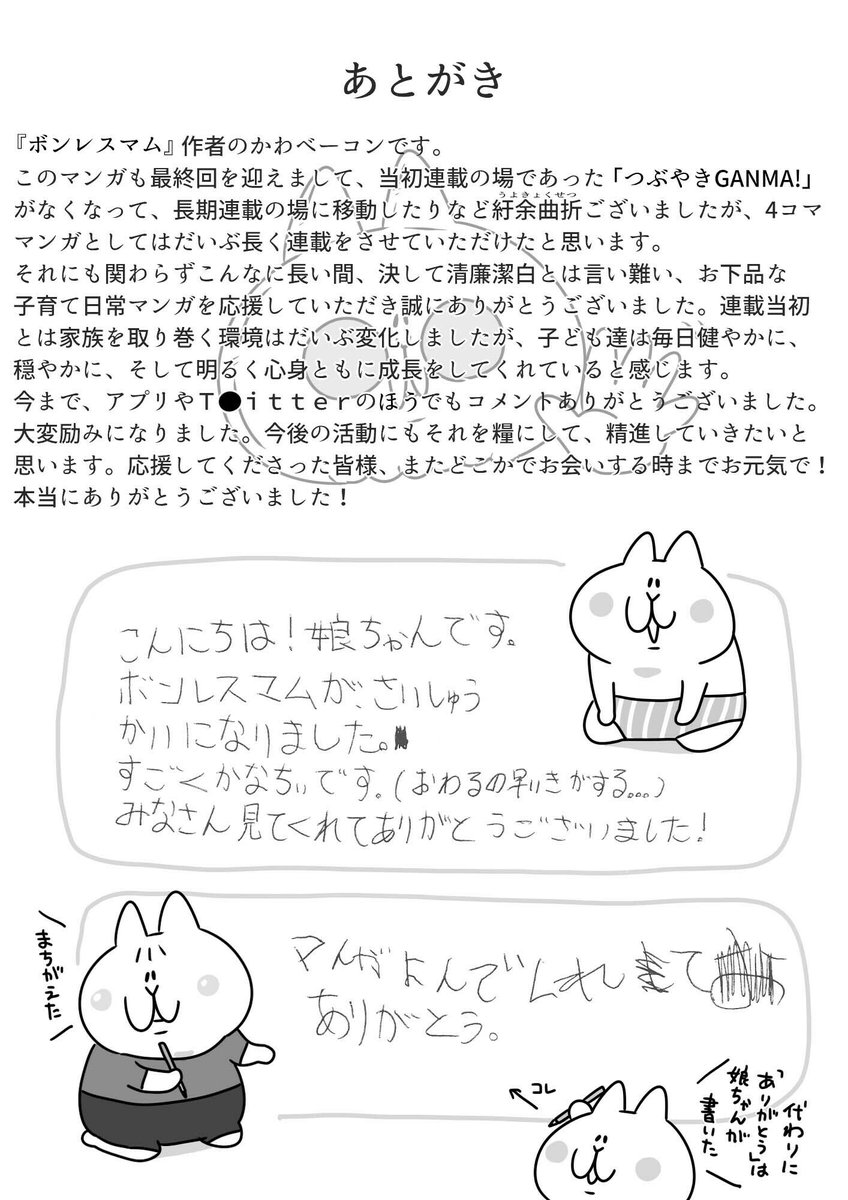 あとがき
『ボンレスマム』作者のかわベーコンです。
このマンガも最終回を迎えまして、当初連載の場であった「つぶやきGANMA!」
うよきょくせつ
がなくなって、長期連載の場に移動したりなど紆余曲折ございましたが、4コマ
マンガとしてはだいぶ長く連載をさせていただけたと思います。
それにも関わらずこんなに長い間、決して清廉潔白とは言い難い、お下品な
子育て日常マンガを応援していただき誠にありがとうございました。連載当初
とは家族を取り巻く環境はだいぶ変化しましたが、子ども達は毎日健やかに、
穏やかに、そして明るく心身ともに成長をしてくれていると感じます。
今まで、アプリやT●itterのほうでもコメントありがとうございました。
大変励みになりました。今後の活動にもそれを糧にして、精進していきたいと
思います。応援してくださった皆様、またどこかでお会いする時までお元気で！
本当にありがとうございました！
こんにちは！娘ちゃんです。
ボンレスマムが、さいしゅう
かいになりました。
すごくかなちぃです。(おわるの早いきがする...)
みなさん見てくれてありがとうございました！
まちがえた
マんがよんでくれて
ありがとう。
コレ
「ありがとう」は
娘ちゃんが
代わりに
書いた